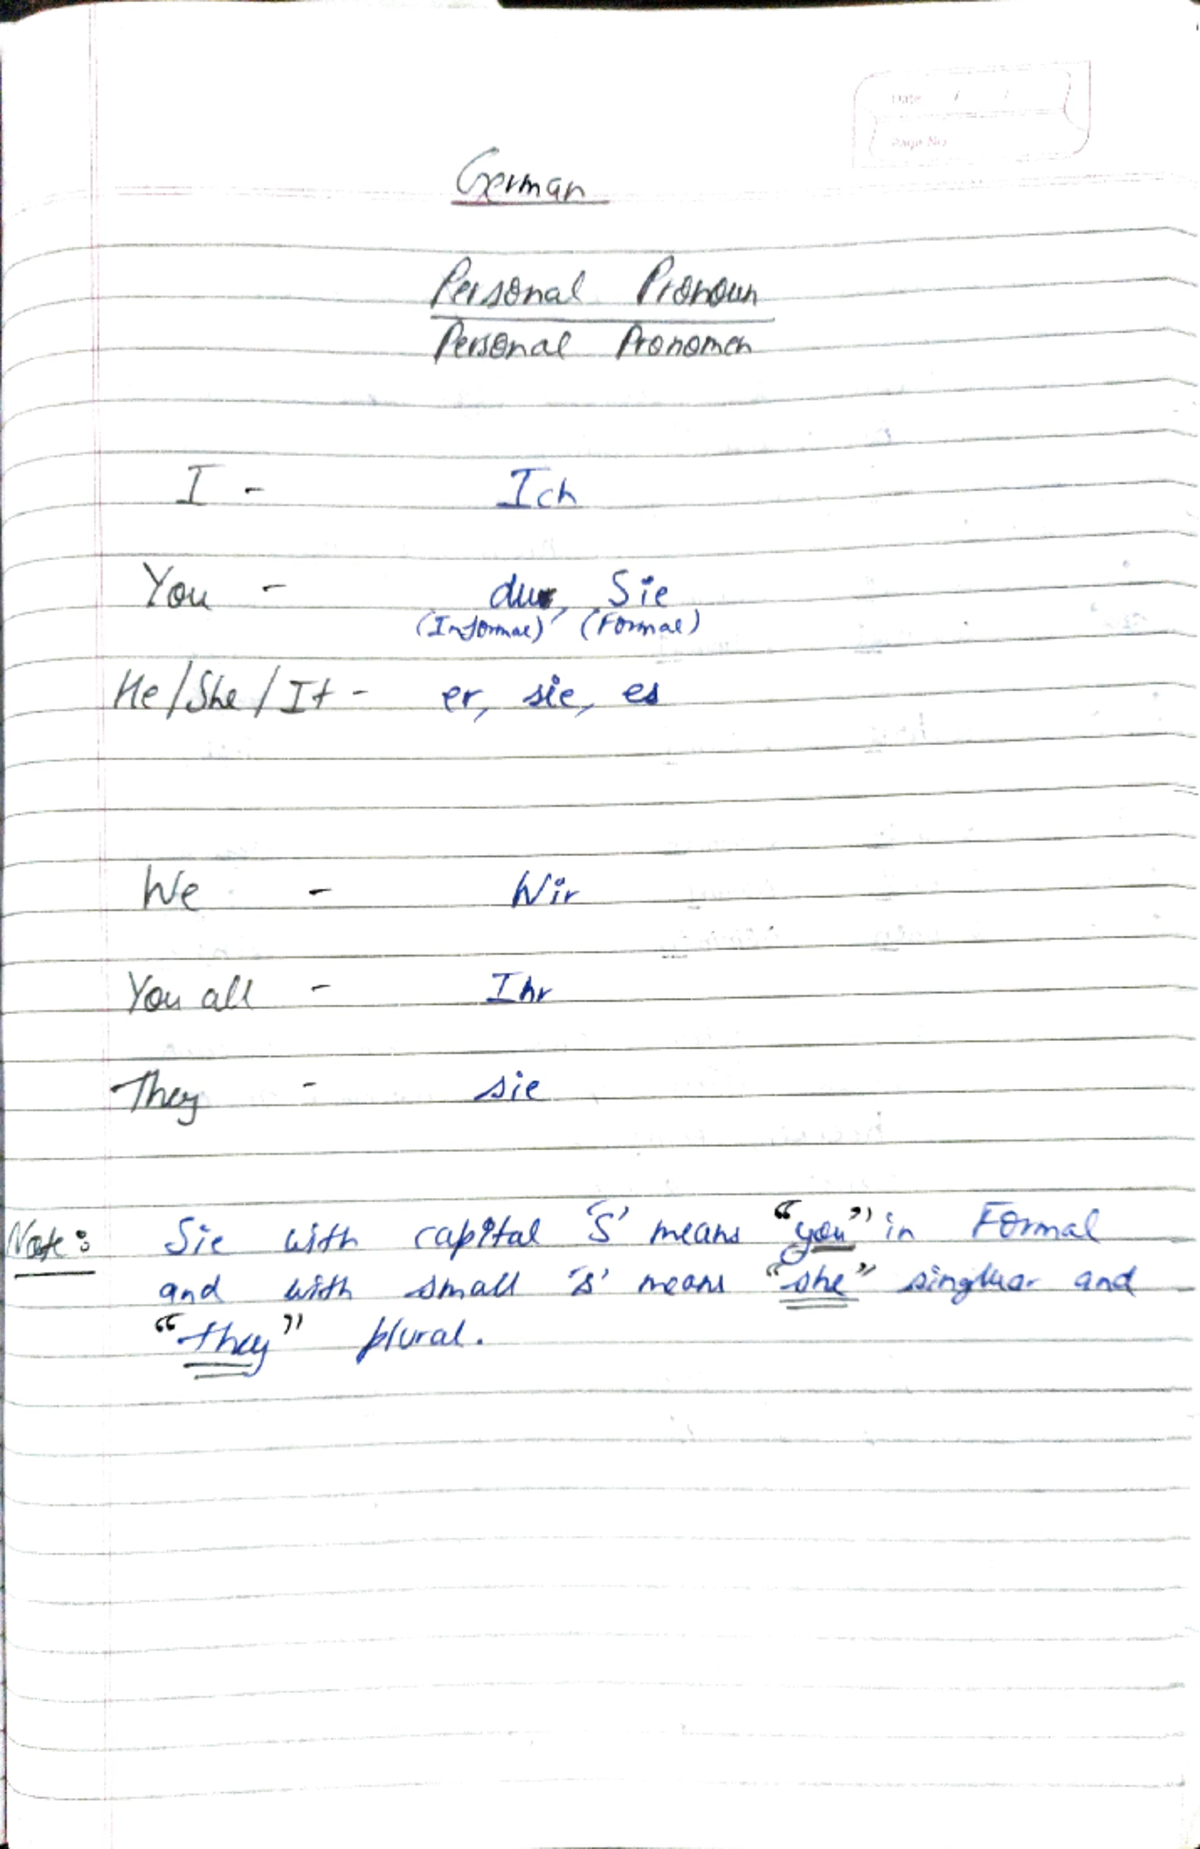 Date / /
Page No.
German
Personal Pronoun
Personal Pronomen
I - Ich
You - du, Sie
(Informal) (Formal)
He/She/It - er, sie, es
We - Wir
You all - Ihr
They - sie
Note: Sie with capital 'S' means "you" in Formal
and with small 's' means "she" singluar and
"they" plural.